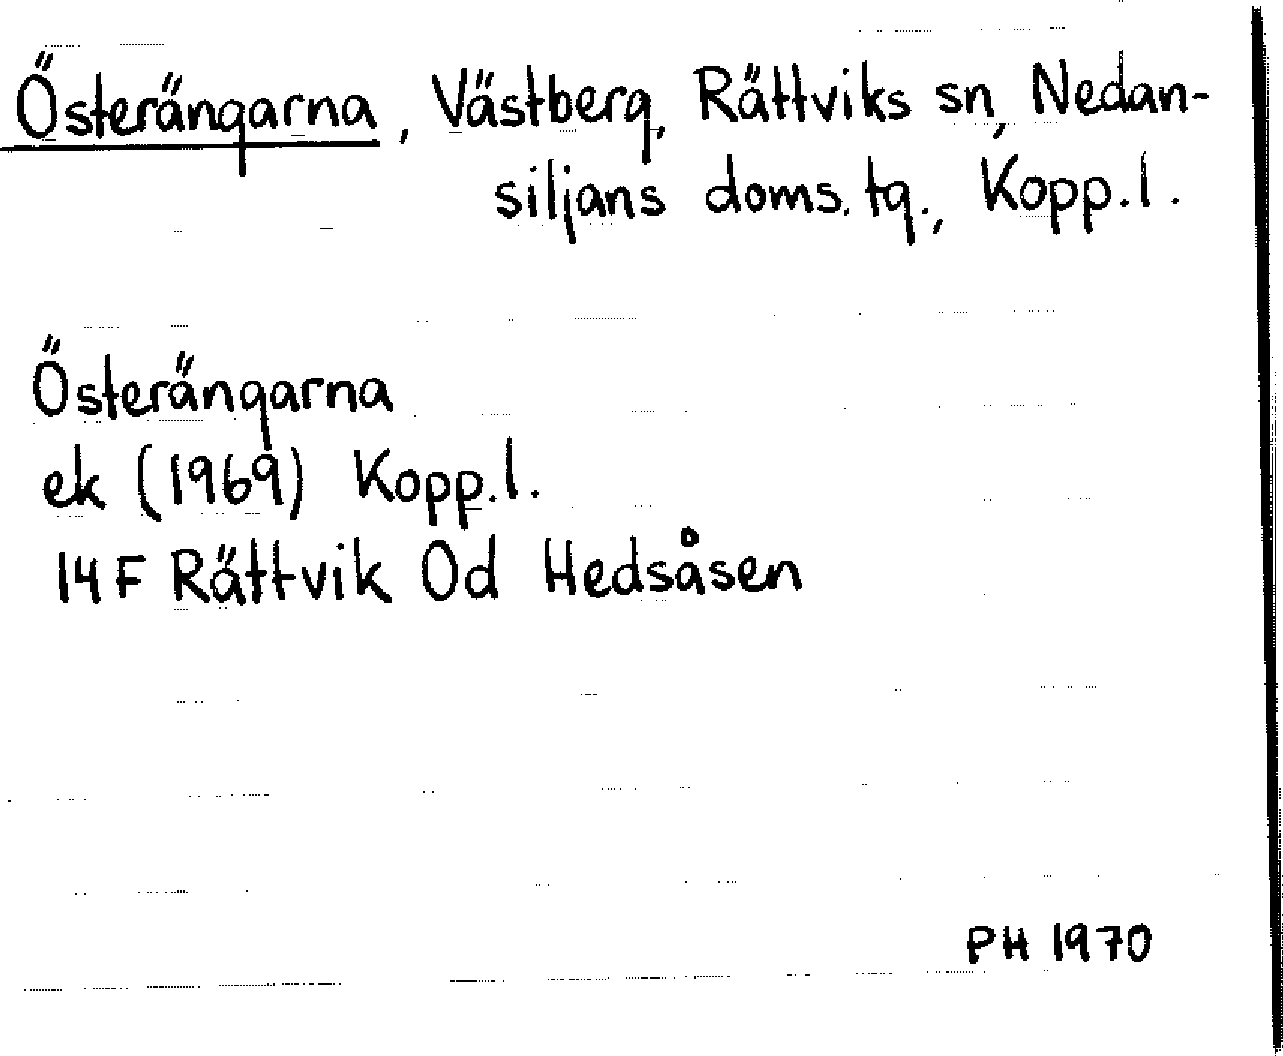 Österängarna, Västberg, Rättviks sn, Nedan-
siljans doms. tg., Kopp. l.
Österängarna
ek (1969) Kopp. l.
14 F Rättvik Od Hedsåsen
PH 1970